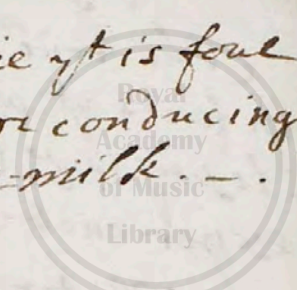 ie yt is foul
or conducing
-milk. – .
Royal
Academy
of Music
Library